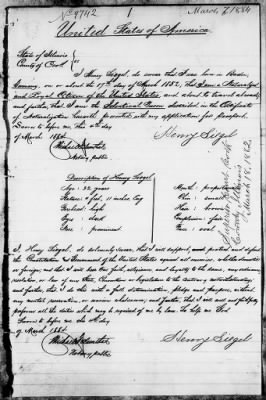 No 9742
March 7, 1884
United States of America
State of Illinois
County of Cook
I, Henry Siegel, do swear that I was born in Baden,
Germany, on or about the 17th day of March 1852; that I am a Naturalized
and Loyal Citizen of the United States, and about to travel abroad;
and further, that I am the Identical Person described in the Certificate
of Naturalization herewith presented with my application for passport.
Sworn to before me, this day
of March 1884
Henry Siegel
Notary public
Description of Henry Siegel
Age: 32 years
Stature: 5 feet, 11 inches Eng
Forehead: high
Eyes: dark
Nose: prominent
Mouth:
Chin: small
Hair:
Complexion: fair
Face: oval
Superior Court, Cook
County, Illinois
March 18, 1882
I, Henry Siegel, do solemnly swear, that I will support, protect and defend
the Constitution & Government of the United States against all enemies, whether domestic
or foreign; and that I will bear true faith, allegiance, and loyalty to the same, any ordinance,
resolution, or law of any State, Convention or Legislature to the contrary notwithstanding;
and further, that I do this with a full determination, pledge and purpose, without
any mental reservation or evasion whatsoever; and further, that I will well and faithfully
perform all the duties which may be required of me by law. So help me God
Sworn to before me this day
of March 1884
Henry Siegel
Notary public